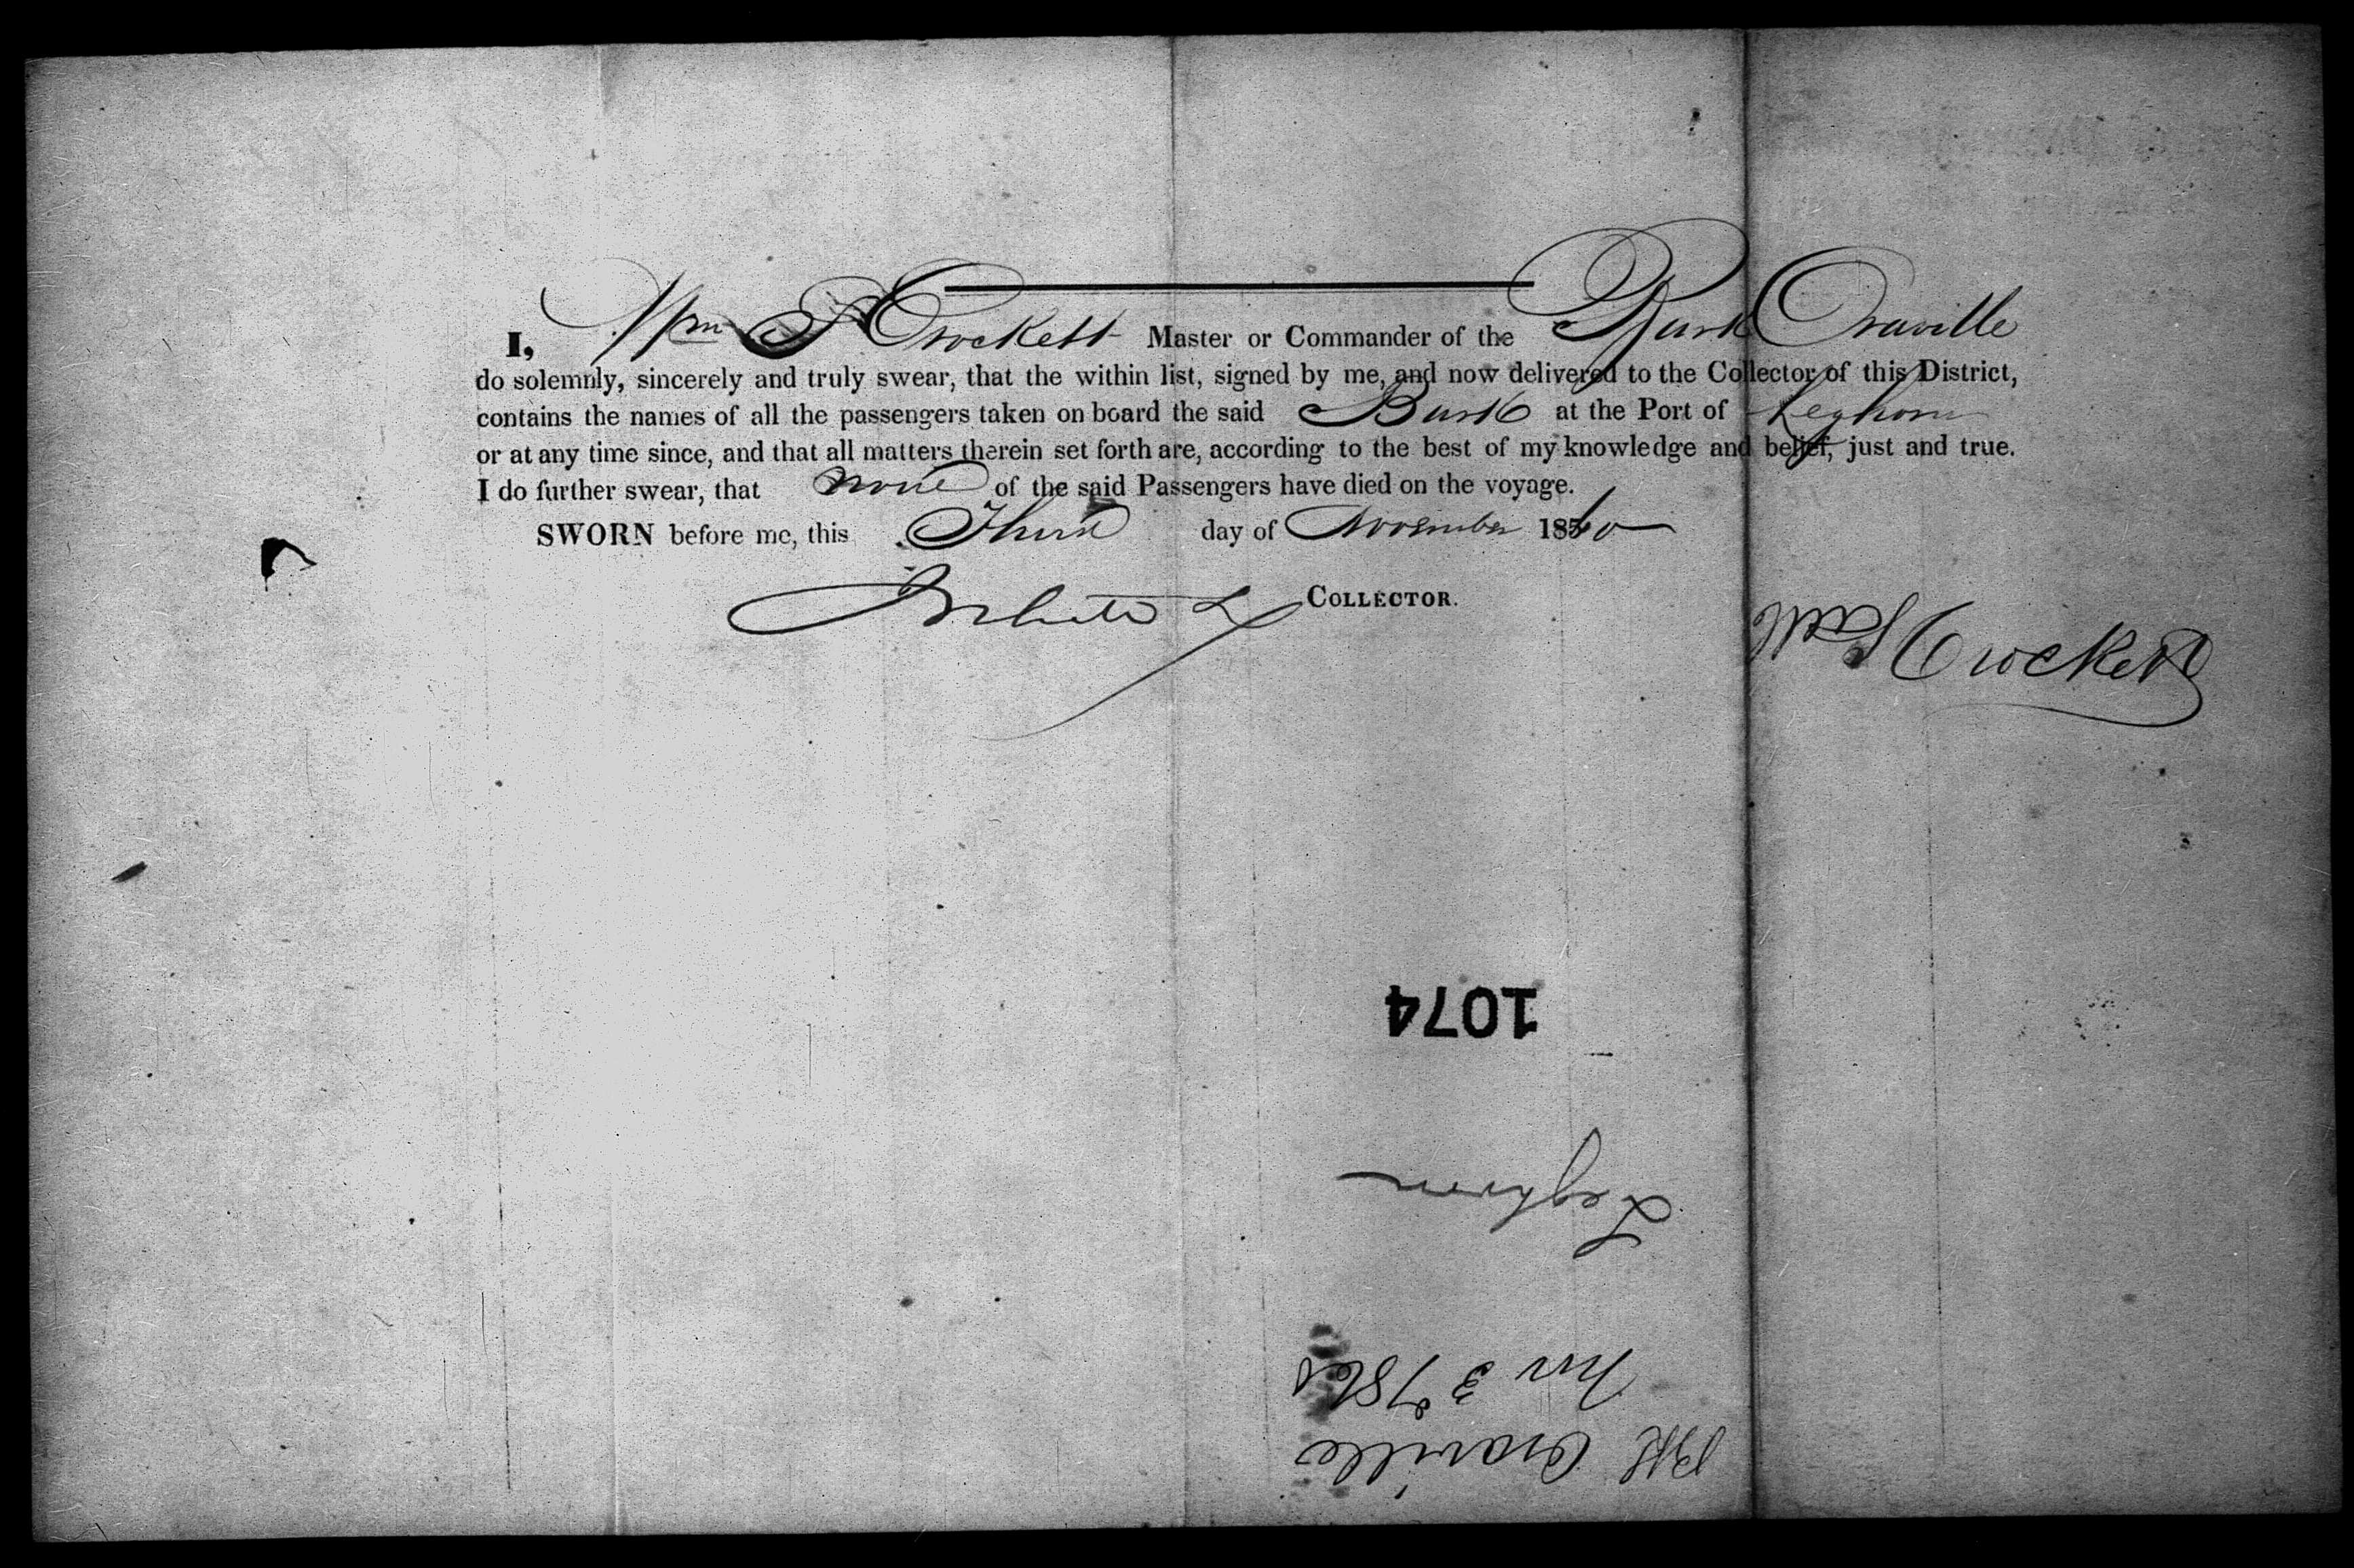 I, Wm S Crockett Master or Commander of the Bark Oraville
do solemnly, sincerely and truly swear, that the within list, signed by me, and now delivered to the Collector of this District,
contains the names of all the passengers taken on board the said Bark at the Port of Leghorn
or at any time since, and that all matters therein set forth are, according to the best of my knowledge and belief, just and true.
I do further swear, that none of the said Passengers have died on the voyage.
SWORN before me, this Third day of November 1860
COLLECTOR.
Crockett
1074
Leghorn
Nov 3d 1860
Bk Oraville